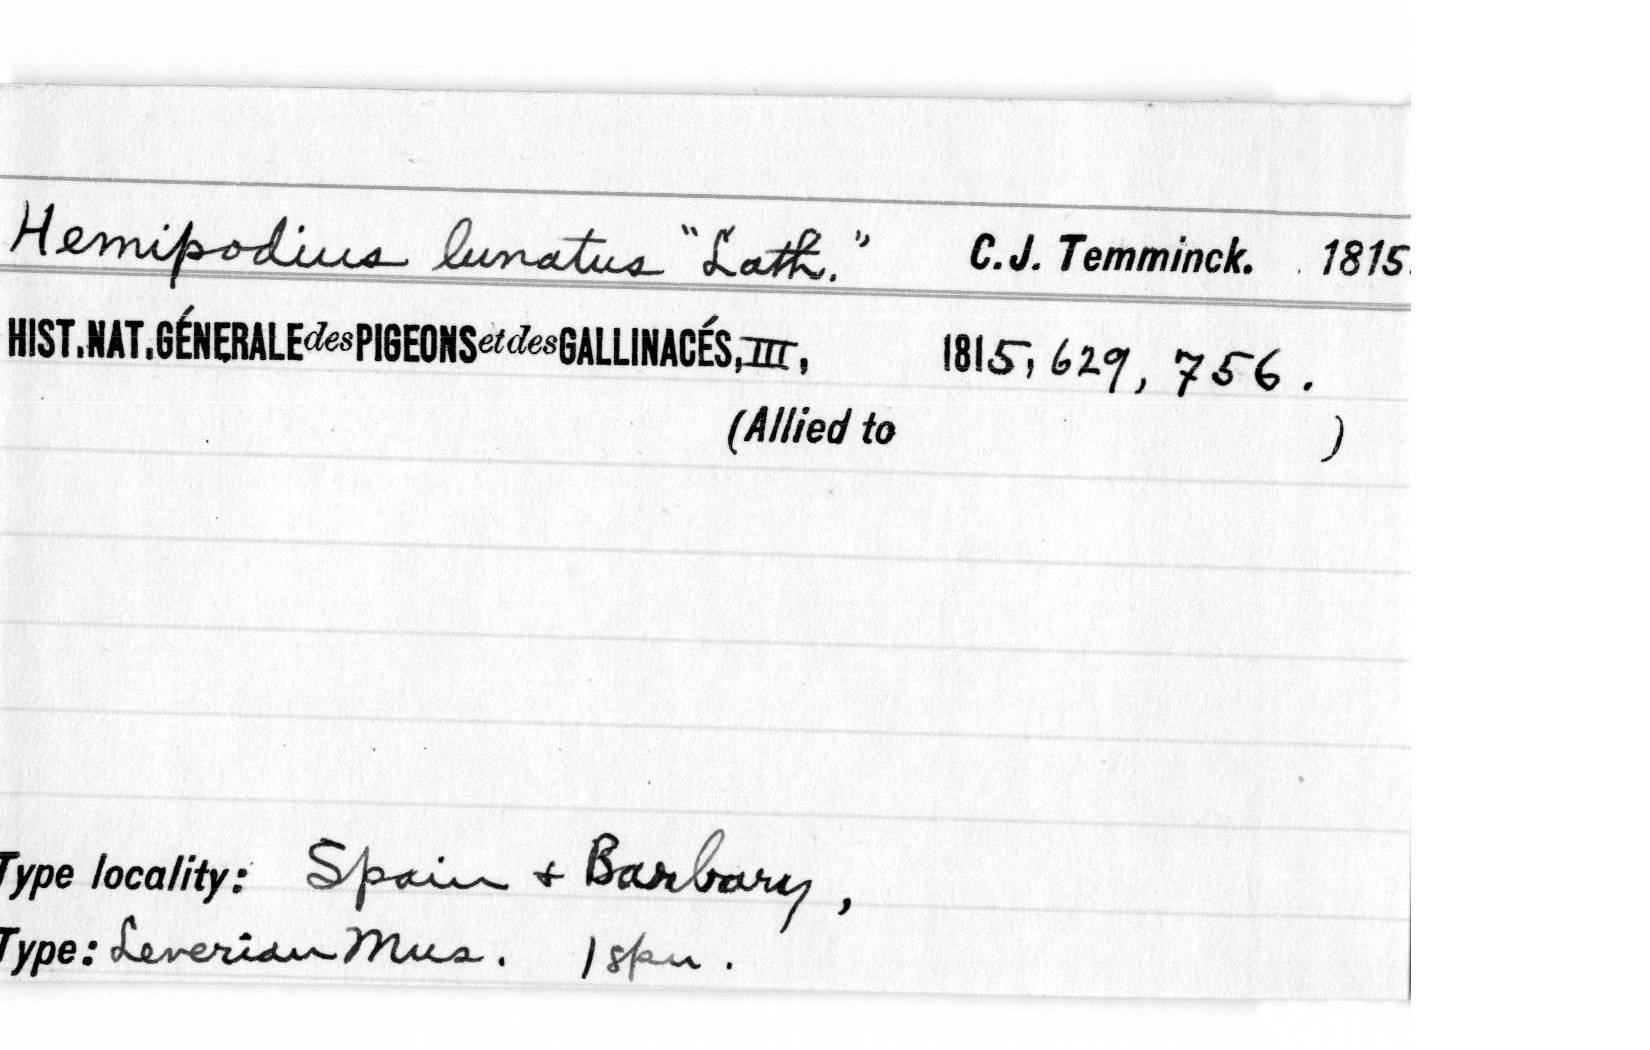 Hemipodius lunatus "Lath." C.J. Temminck. 1815.
HIST.NAT.GÉNERALE des PIGEONS et des GALLINACÉS, III, 1815, 629, 756.
(Allied to )
Type locality: Spain + Barbary,
Type: Leverian Mus. 1 spn.